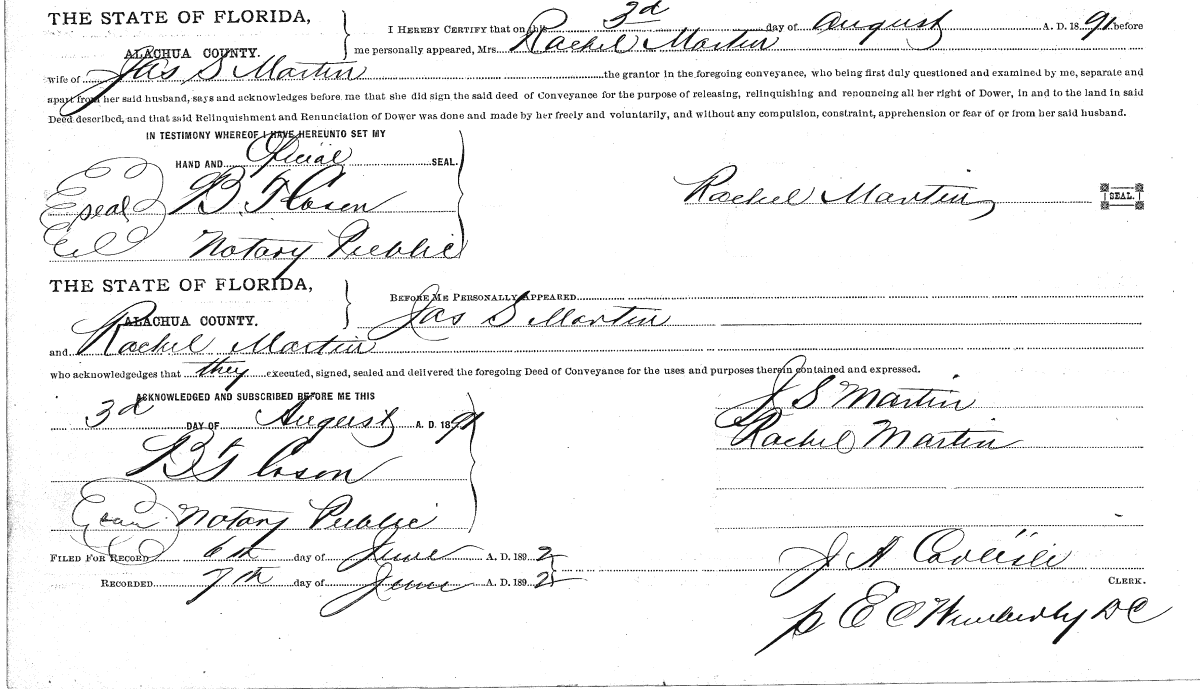 THE STATE OF FLORIDA,
ALACHUA COUNTY.
I HEREBY CERTIFY that on this 3d day of August A. D. 1891 before
me personally appeared, Mrs. Rachel Martin
wife of Jas S Martin the grantor in the foregoing conveyance, who being first duly questioned and examined by me, separate and
apart from her said husband, says and acknowledges before me that she did sign the said deed of Conveyance for the purpose of releasing, relinquishing and renouncing all her right of Dower, in and to the land in said
Deed described, and that said Relinquishment and Renunciation of Dower was done and made by her freely and voluntarily, and without any compulsion, constraint, apprehension or fear of or from her said husband.
IN TESTIMONY WHEREOF I HAVE HEREUNTO SET MY
HAND AND Oficial SEAL.
seal B. F. Cosen
Rachel Martin SEAL.
Notary Public
THE STATE OF FLORIDA,
ALACHUA COUNTY.
BEFORE ME PERSONALLY APPEARED
Jas S Martin
and Rachel Martin
who acknowledgedges that they executed, signed, sealed and delivered the foregoing Deed of Conveyance for the uses and purposes therein contained and expressed.
ACKNOWLEDGED AND SUBSCRIBED BEFORE ME THIS
3d DAY OF August A. D. 1891
J S Martin
Rachel Martin
B F Cosen
seal Notary Public
FILED FOR RECORD 6th day of June A. D. 1892
RECORDED 7th day of June A. D. 1892
J A Carlisle
CLERK.
p E C Wimberly DC